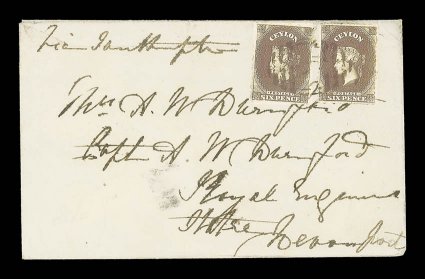 Via Southampton
CEYLON CEYLON
POSTAGE POSTAGE
SIX PENCE SIX PENCE
A. W. Durnford
Capt A. W. Durnford
Royal Engineers
Devonport